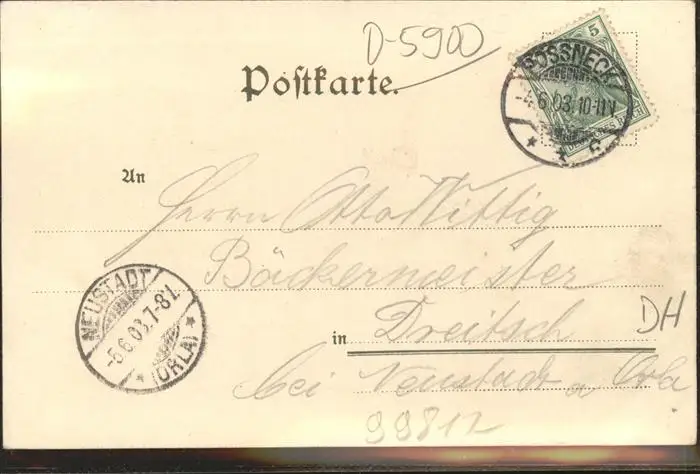 D-5900
Postkarte.
5
DEUTSCHES REICH
PÖSSNECK
-4.6.03.10-11V.
* * c
An
Herrn Otto Wittig
Bäckermeister
in Dreitsch
bei Neustadt a Orla
99812
DH
NEUSTADT
-5.6.03.7-8V.
* (ORLA) *